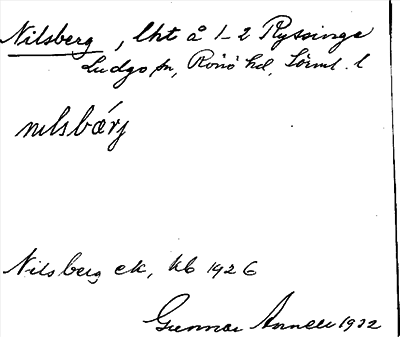 Nilsberg, lht å 1-2 Ryssinge
Ludgo sn, Rönö hd, Sörml. l
nilsbærj
Nilsberg ek, kb 1926
Gunnar 1932